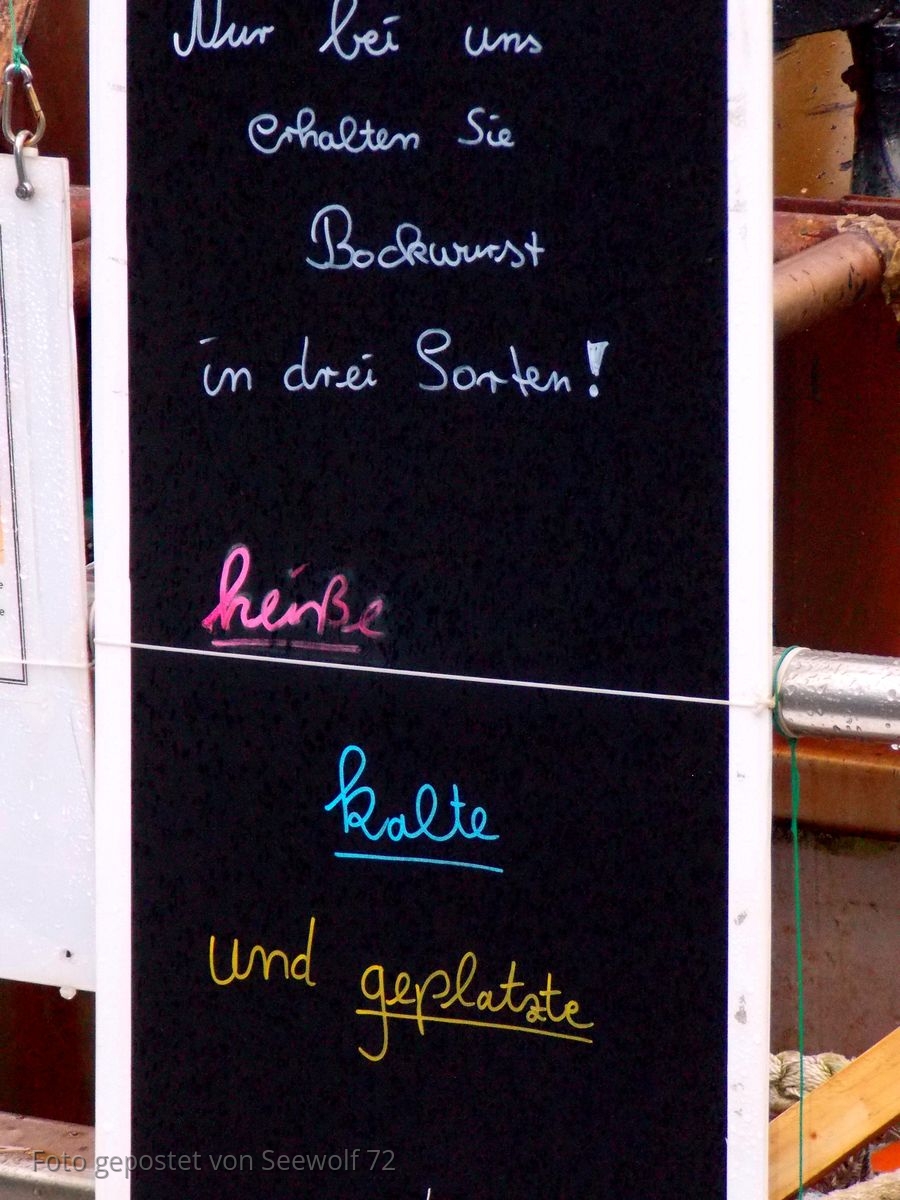 Nur bei uns
erhalten Sie
Bockwurst
in drei Sorten!
heiße
kalte
und geplatzte
Foto gepostet von Seewolf 72